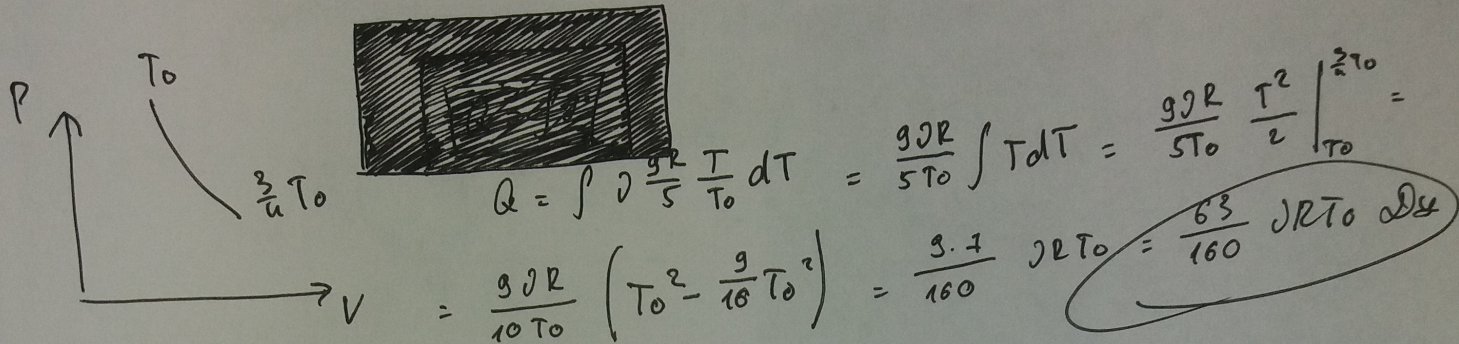 P
T₀
3/4 T₀
V
Q = ∫ ϑ 9R/5 T/T₀ dT = 9ϑR/5T₀ ∫ T dT = 9ϑR/5T₀ T²/2 |_{T₀}^{3/4 T₀} =
= 9ϑR/10T₀ (T₀² - 9/16 T₀²) = 9·7/160 ϑRT₀ = 63/160 ϑRT₀ Дж